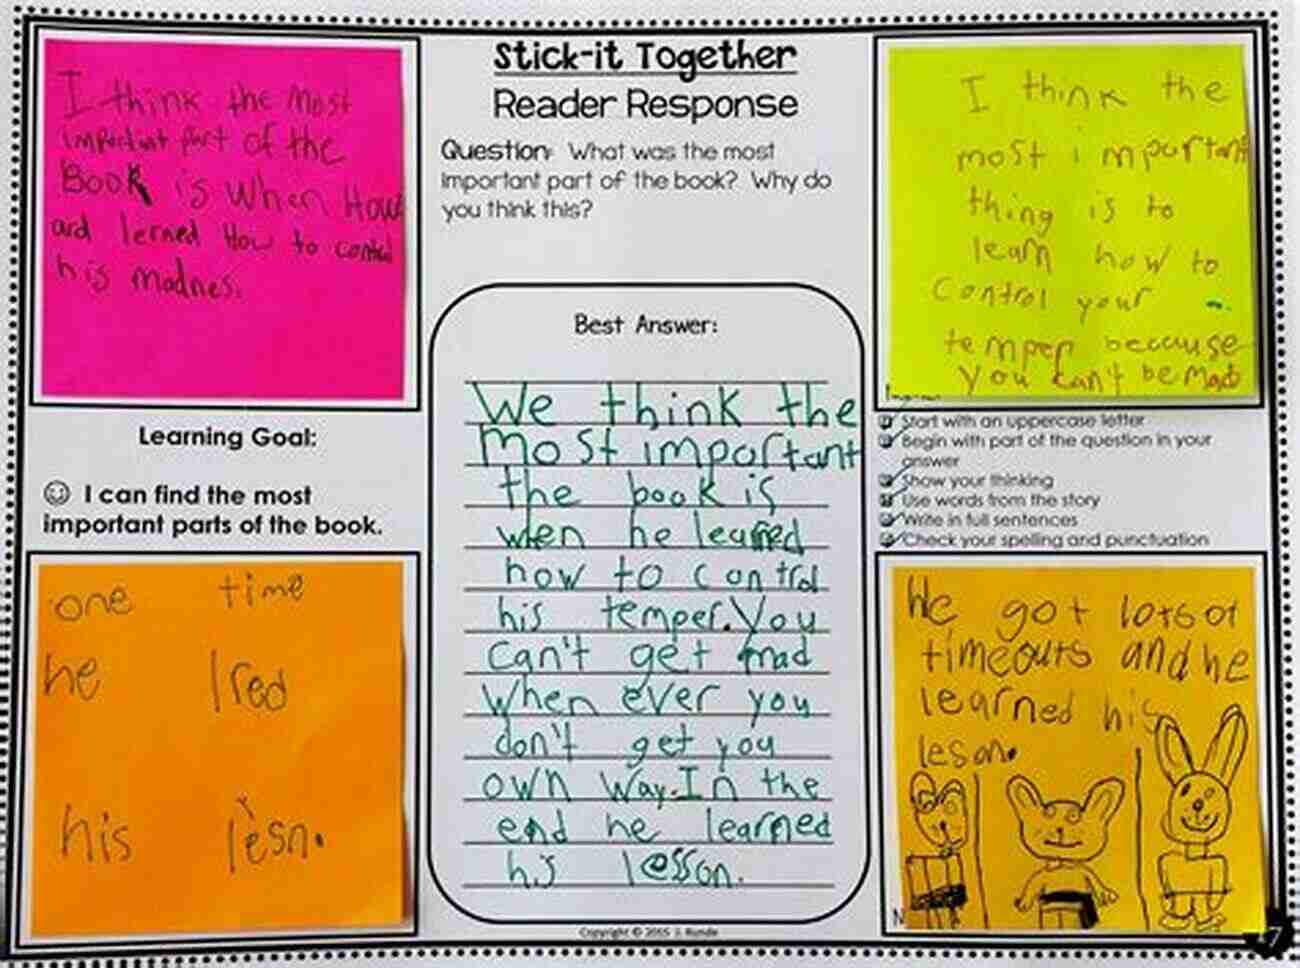 I think the most
important part of the
Book is when How
ard lerned How to control
his madnes.
Stick-it Together
Reader Response
Question: What was the most
important part of the book? Why do
you think this?
I think the
most important
thing is to
learn how to
control your
temper because
you can't be mad
Learning Goal:
☺ I can find the most
important parts of the book.
Best Answer:
We think the
most important
the book is
when he learned
how to control
his temper. You
can't get mad
when ever you
don't get you
own way. In the
end he learned
his lesson.
Start with an uppercase letter
Begin with part of the question in your
answer
Show your thinking
Use words from the story
Write in full sentences
Check your spelling and punctuation
one time
he lred
his lesn.
He got lots of
timeouts and he
learned his
leson.
Copyright © 2015 J. Runde
7